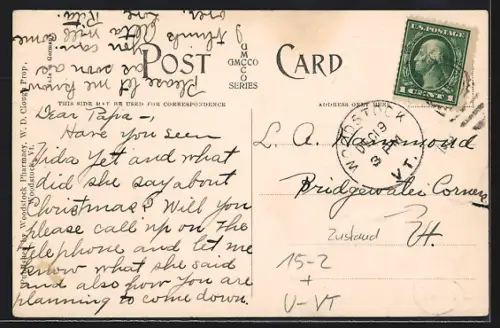 POST CARD
GMCCO
GMCCO
SERIES
THIS SIDE MAY BE USED FOR CORRESPONDENCE
ADDRESS ON
Published by Woodstock Pharmacy, W. D. Clough Prop.,
Woodstock, Vt.
U.S. POSTAGE
1 CENT 1
WOODSTOCK
DEC 19
3 PM
VT.
Dear Papa -,
Have you seen
Zida yet and what
did she say about
Christmas? Will you
please call up on the
telephone and let me
know what she said
and also how you are
planning to come down.
Please let me know
as soon as
you can.
I think Alta will come
over.
Love
Ruth.
L. A. Hammond
Bridgewater Corners
Vt.
Zustand
15-2
+
U-VT